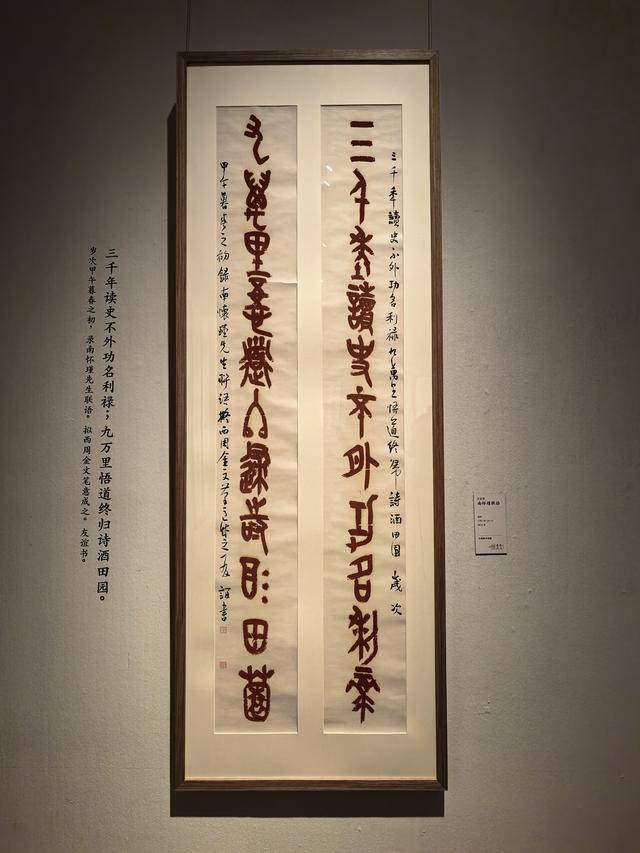 三千年讀史不外功名利祿
三千年讀史不外功名利祿九萬里悟道終歸詩酒田園 歲次
九萬里悟道終歸詩酒田園
甲午暮春之初錄南懷瑾先生聯語擬西周金文筆意成之友誼書
三千年读史不外功名利禄；九万里悟道终归诗酒田园。
岁次甲午暮春之初，录南怀瑾先生联语。拟西周金文笔意成之。友谊书。
南怀瑾联语